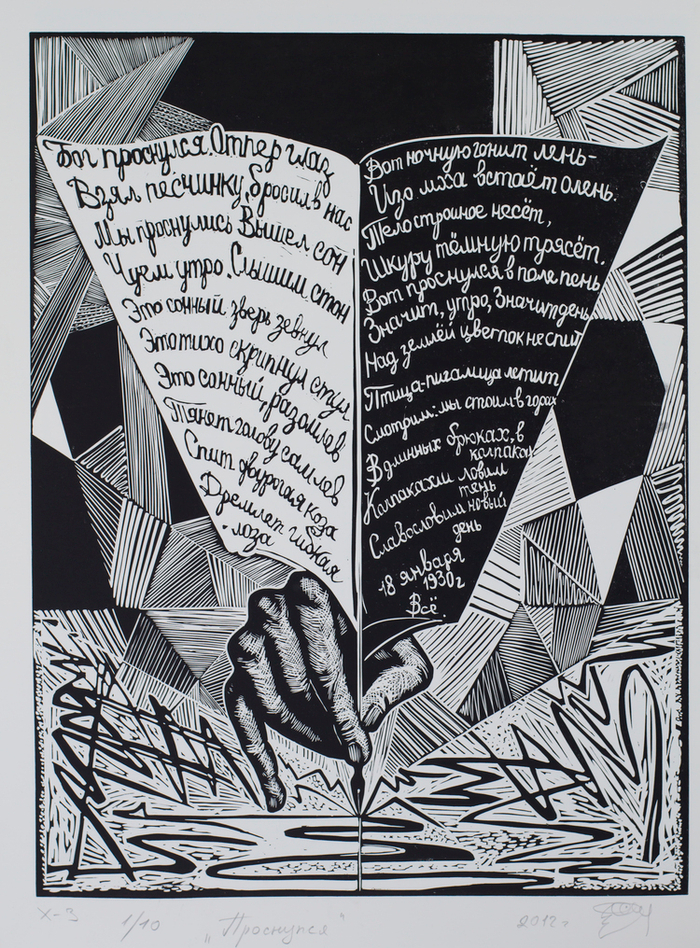 Бог проснулся. Отпер глаз
Взял песчинку, бросил в нас
Мы проснулись Вышел сон
Чуем утро. Слышим стон
Это сонный зверь зевнул
Это тихо скрипнул стул
Это сонный, разомлев
Тянет голову сам лев
Спит двурогая коза
Дремлет гибкая
лоза
Вот ночную гонит лень-
Изо мха встаёт олень.
Тело стройное несёт,
Шкуру тёмную трясёт.
Вот проснулся в поле пень
Значит, утро, Значит день
Над землёй цветок не спит
Птица-пигалица летит
Смотрим: мы стоим в горах
В длинных брюках, в
колпаках
Колпаками ловим
тень
Славословим новый
день
18 января
1930г
Всё.
X-3 1/10 „Проснулся" 2012г